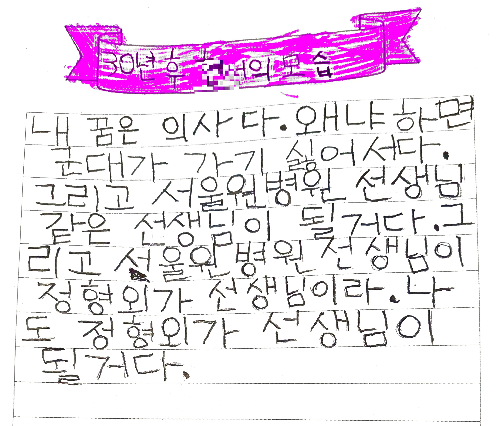 30년 후 의 모습
내 꿈은 의사다. 왜냐하면
군대가 가기 싫어서다.
그리고 서울원병원 선생님
같은 선생님이 될거다. 그
리고 서울원병원 선생님이
정형외가 선생님이라. 나
도 정형외가 선생님이
될거다.